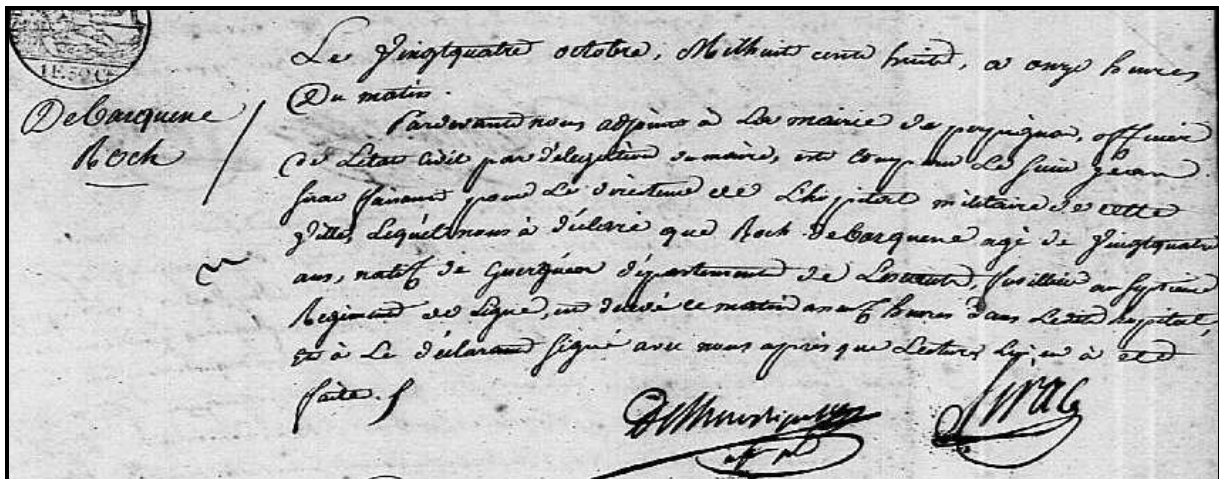 Debarquene
Roch
Le Vingtquatre octobre, Milhuit cent huit, a onze heures
Du matin.
Pardevant nous adjoint à La mairie de perpignan, officier
De L'etat Civil par délégation du maire, est Comparu Le sieur jean
faisant pour Le Directeur de L'hopital militaire de cette
Ville, Lequel nous à déclaré que Roch Debarquene agé de Vingtquatre
ans, natif de département de fusillier au
Regiment de Ligne, est décédé ce matin a neuf heures dans Ledit hopital,
et à Le déclarant Signé avec nous après que Lecture Lui en à eté
faite.
Sirac